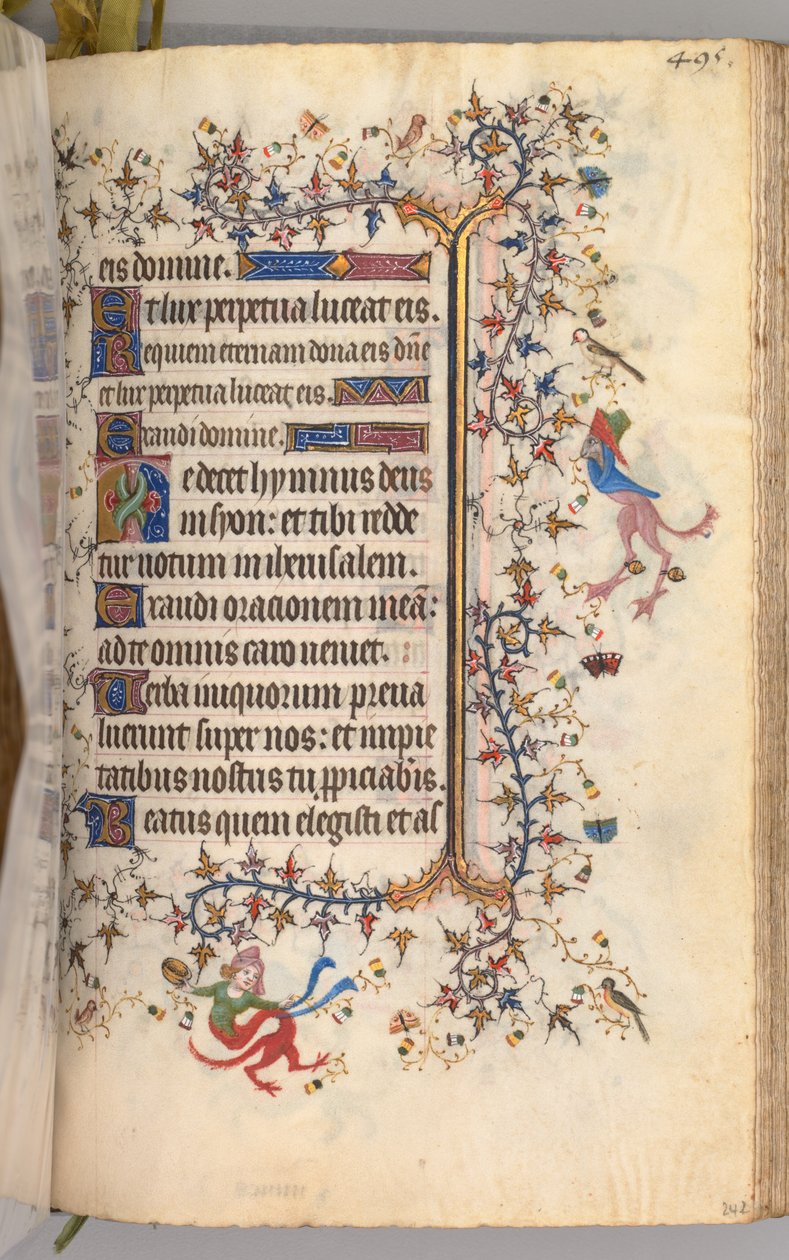 495.
eis domine.
Et lux perpetua luceat eis.
Requiem eternam dona eis dñe
et lux perpetua luceat eis.
Exaudi domine.
Te decet hymnus deus
in syon: et tibi redde
tur uotum in iherusalem.
Exaudi orationem meā:
ad te omnis caro ueniet.
Uerba iniquorum preua
luerunt super nos: et impie
tatibus nostris tu ꝓpiciab̄is.
Beatus quem elegisti et as
242